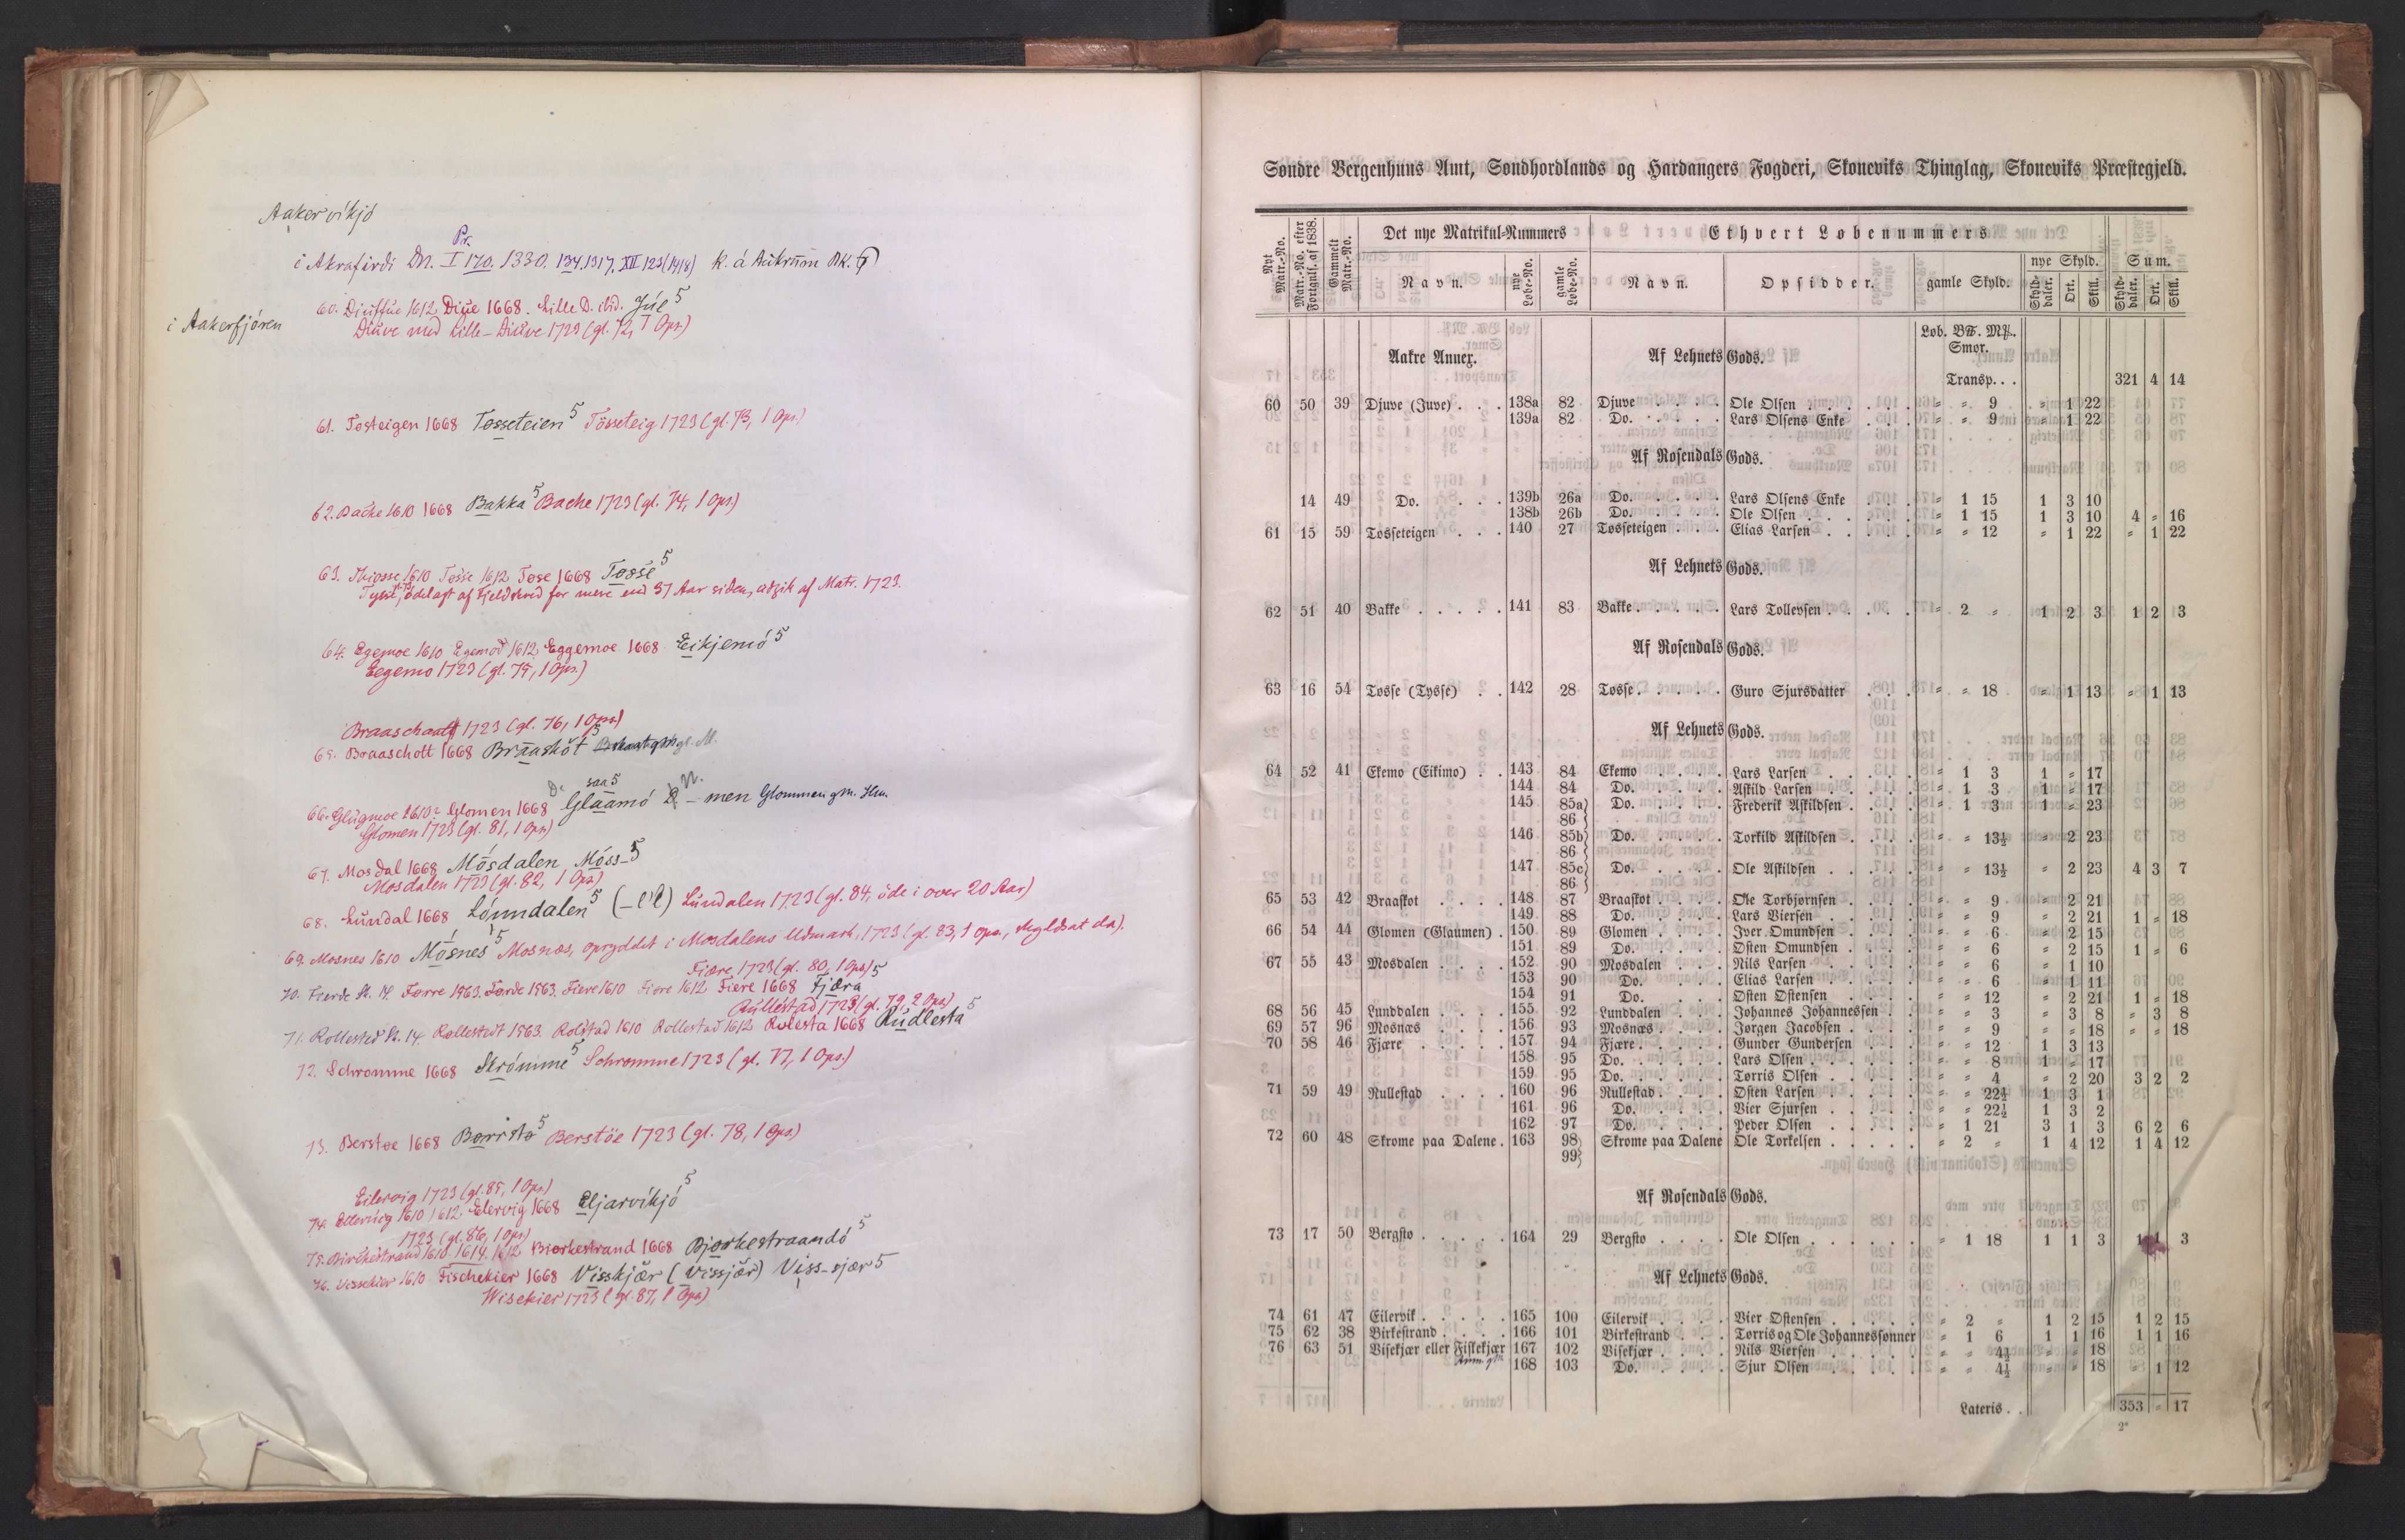 Aakervikjó
Pr.
i Akrafirdi Dn. I 170. 1330. 134.1317, XII 123(1418) k. á Aukrum BK.
60. Diuffue 1612 Diue 1668. Lille D. ibid. Júe 5
i Aakerfjóren
Diuve med Lille-Diuve 1723 (gl. 72, 1 Ops.)
61. Tosteigen 1668 Tosseteien 5 Tösseteig 1723 (gl. 73, 1 Ops.)
62. Backe 1610 1668 Bakka 5 Bache 1723 (gl. 74, 1 Ops.)
63. Thiosse 1610 Tosse 1612 Tose 1668 Tosse 5
Tysse, ödelagt af Fjeldskred for mere end 37 Aar siden, adgik af Matr. 1723.
64. Egemoe 1610 Egemod 1612 Eggemoe 1668 Eikjemó 5
Eegemo 1723 (gl. 75, 1 Ops.)
Braaschaatt 1723 (gl. 76, 1 Ops.)
65. Braaschott 1668 Braaskot 5 gl. M.
saa 5
66. Glugmoe 1610? Glomen 1668 Glaamó D. - men Glommen gm. Hm.
Glomen 1723 (gl. 81, 1 Ops.)
67. Mosdal 1668 Mósdalen Móss- 5
Mosdalen 1723 (gl. 82, 1 Ops.)
68. Lundal 1668 Lónndalen 5 Lundalen 1723 (gl. 84, öde i over 20 Aar)
69. Mosnes 1610 Mósnes 5 Mosnæs, opryddet i Mosdalens Udmark, 1723 (gl. 83, 1 Ops., skyldsat da).
Fiære 1723 (gl. 80, 1 Ops.)
70. Fierde St. 14. Færre 1563. Færde 1563. Fiere 1610 Fiere 1612 Fiere 1668 Fjæra 5
Rullestad 1723 (gl. 79, 2 Ops.)
71. Rollested St. 14. Rollestedt 1563. Rolstad 1610 Rollestad 1612 Rolesta 1668 Rudlesta 5
72. Schromme 1668 Skrómme 5 Schromme 1723 (gl. 77, 1 Ops.)
73. Berstøe 1668 Børrstø 5 Berstöe 1723 (gl. 78, 1 Ops.)
Eilervig 1723 (gl. 85, 1 Ops.)
74. Ellervig 1610 1612 Elervig 1668 Eljarvikjó 5
1723 (gl. 86, 1 Ops.)
75. Birchestrand 1610. 1614. 1612 Biørkestrand 1668 Bjørkestraandó 5
76. Vissekier 1610 Fischekier 1668 Visskjær (Vissjær) Viss-sjær 5
Wisekier 1723 (gl. 87, 1 Ops.)
Søndre Bergenhuus Amt, Søndhordlands og Hardangers Fogderi, Skoneviks Thinglag, Skoneviks Præstegjeld.
Nyt Matr.-No. Matr.-No. efter Fortgnlf. af 1838. Gammelt Matr.-No. Det nye Matrikul-Nummers Ethvert Løbenummers
Navn. nye Løbe-No. gamle Løbe-No. Navn. Opsidder. gamle Skyld. nye Skyld. Sum.
Skylddaler. Ort. Skill. Skylddaler. Ort. Skill.
Løb. B℔. M℔.
Aakre Annex. Af Lehnets Gods. Smør.
Transp. . . 321 4 14
60 50 39 Djuve (Juve) . . . 138a 82 Djuve . . . . Ole Olsen . . . . . . = = 9 = 1 22
139a 82 Do. . . . . Lars Olsens Enke . . . = = 9 = 1 22
Af Rosendals Gods.
14 49 Do. . . . 139b 26a Do. . . . . Lars Olsens Enke . . . = 1 15 1 3 10
138b 26b Do. . . . . Ole Olsen . . . . . . = 1 15 1 3 10 4 = 16
61 15 59 Tosseteigen . . . 140 27 Tosseteigen . . . Elias Larsen . . . . . = = 12 = 1 22 = 1 22
Af Lehnets Gods.
62 51 40 Bakke . . . . . 141 83 Bakke . . . . . Lars Tollevsen . . . . . = 2 = 1 2 3 1 2 3
Af Rosendals Gods.
63 16 54 Tosse (Tysse) . . 142 28 Tosse . . . . . Guro Sjursdatter . . . = = 18 = 1 13 = 1 13
Af Lehnets Gods.
64 52 41 Ekemo (Eikimo) . . 143 84 Ekemo . . . . Lars Larsen . . . . . = 1 3 1 = 17
144 84 Do. . . . . Askild Larsen . . . . . = 1 3 1 = 17
145 85a} Do. . . . . Frederik Askildsen . . . = 1 3 1 = 23
86}
146 85b} Do. . . . . Torkild Askildsen . . . . = = 13½ = 2 23
86}
147 85c} Do. . . . . Ole Askildsen . . . . . = = 13½ = 2 23 4 3 7
86}
65 53 42 Braaskot . . . . 148 87 Braaskot . . . . Ole Torbjørnsen . . . . = = 9 = 2 21
149 88 Do. . . . . Lars Viersen . . . . . = = 9 = 2 21 1 = 18
66 54 44 Glomen (Glaumen) . 150 89 Glomen . . . . Iver Omundsen . . . . = = 6 = 2 15
151 89 Do. . . . . Østen Omundsen . . . . = = 6 = 2 15 1 = 6
67 55 43 Mosdalen . . . . 152 90 Mosdalen . . . Nils Larsen . . . . . = = 6 = 1 10
153 90 Do. . . . Elias Larsen . . . . . = = 6 = 1 11
154 91 Do. . . . Østen Østensen . . . . = = 12 = 2 21 1 = 18
68 56 45 Lunddalen . . . . 155 92 Lunddalen . . . Johannes Johannessen . = = 3 = 3 8 = 3 8
69 57 96 Mosnæs . . . . 156 93 Mosnæs . . . . Jørgen Jacobsen . . . . = = 9 = = 18 = = 18
70 58 46 Fjære . . . . . 157 94 Fjære . . . . . Gunder Gundersen . . . = = 12 1 3 13
158 95 Do. . . . . Lars Olsen . . . . . . = = 8 1 = 17
159 95 Do. . . . . Torris Olsen . . . . . = = 4 = 2 20 3 2 2
71 59 49 Rullestad . . . . 160 96 Rullestad . . . . Østen Larsen . . . . . = = 22½ 1 3 1
161 96 Do. . . . . Vier Sjursen . . . . . = = 22½ 1 3 2
162 97 Do. . . . . Peder Olsen . . . . . = 1 21 3 1 3 6 2 6
72 60 48 Skrome paa Dalene . 163 98} Skrome paa Dalene Ole Torkelsen . . . . . = 2 = 1 4 12 1 4 12
99}
Af Rosendals Gods.
73 17 50 Bergsto . . . . . 164 29 Bergsto . . . . Ole Olsen . . . . . . = 1 18 1 1 3 1 1 3
Af Lehnets Gods.
74 61 47 Eilervik . . . . . 165 100 Eilervik . . . . Vier Østensen . . . . . = 2 = 1 2 15 1 2 15
75 62 38 Birkestrand . . . . 166 101 Birkestrand . . . Torris og Ole Johannessønner = 1 6 1 1 16 1 1 16
76 63 51 Visekjær eller Fiskekjær 167 102 Visekjær . . . . Nils Viersen . . . . . = = 4½ = = 18
168 103 Do. . . . . Sjur Olsen . . . . . = = 4½ = = 18 = 1 12
Lateris . . 353 = 17
2*